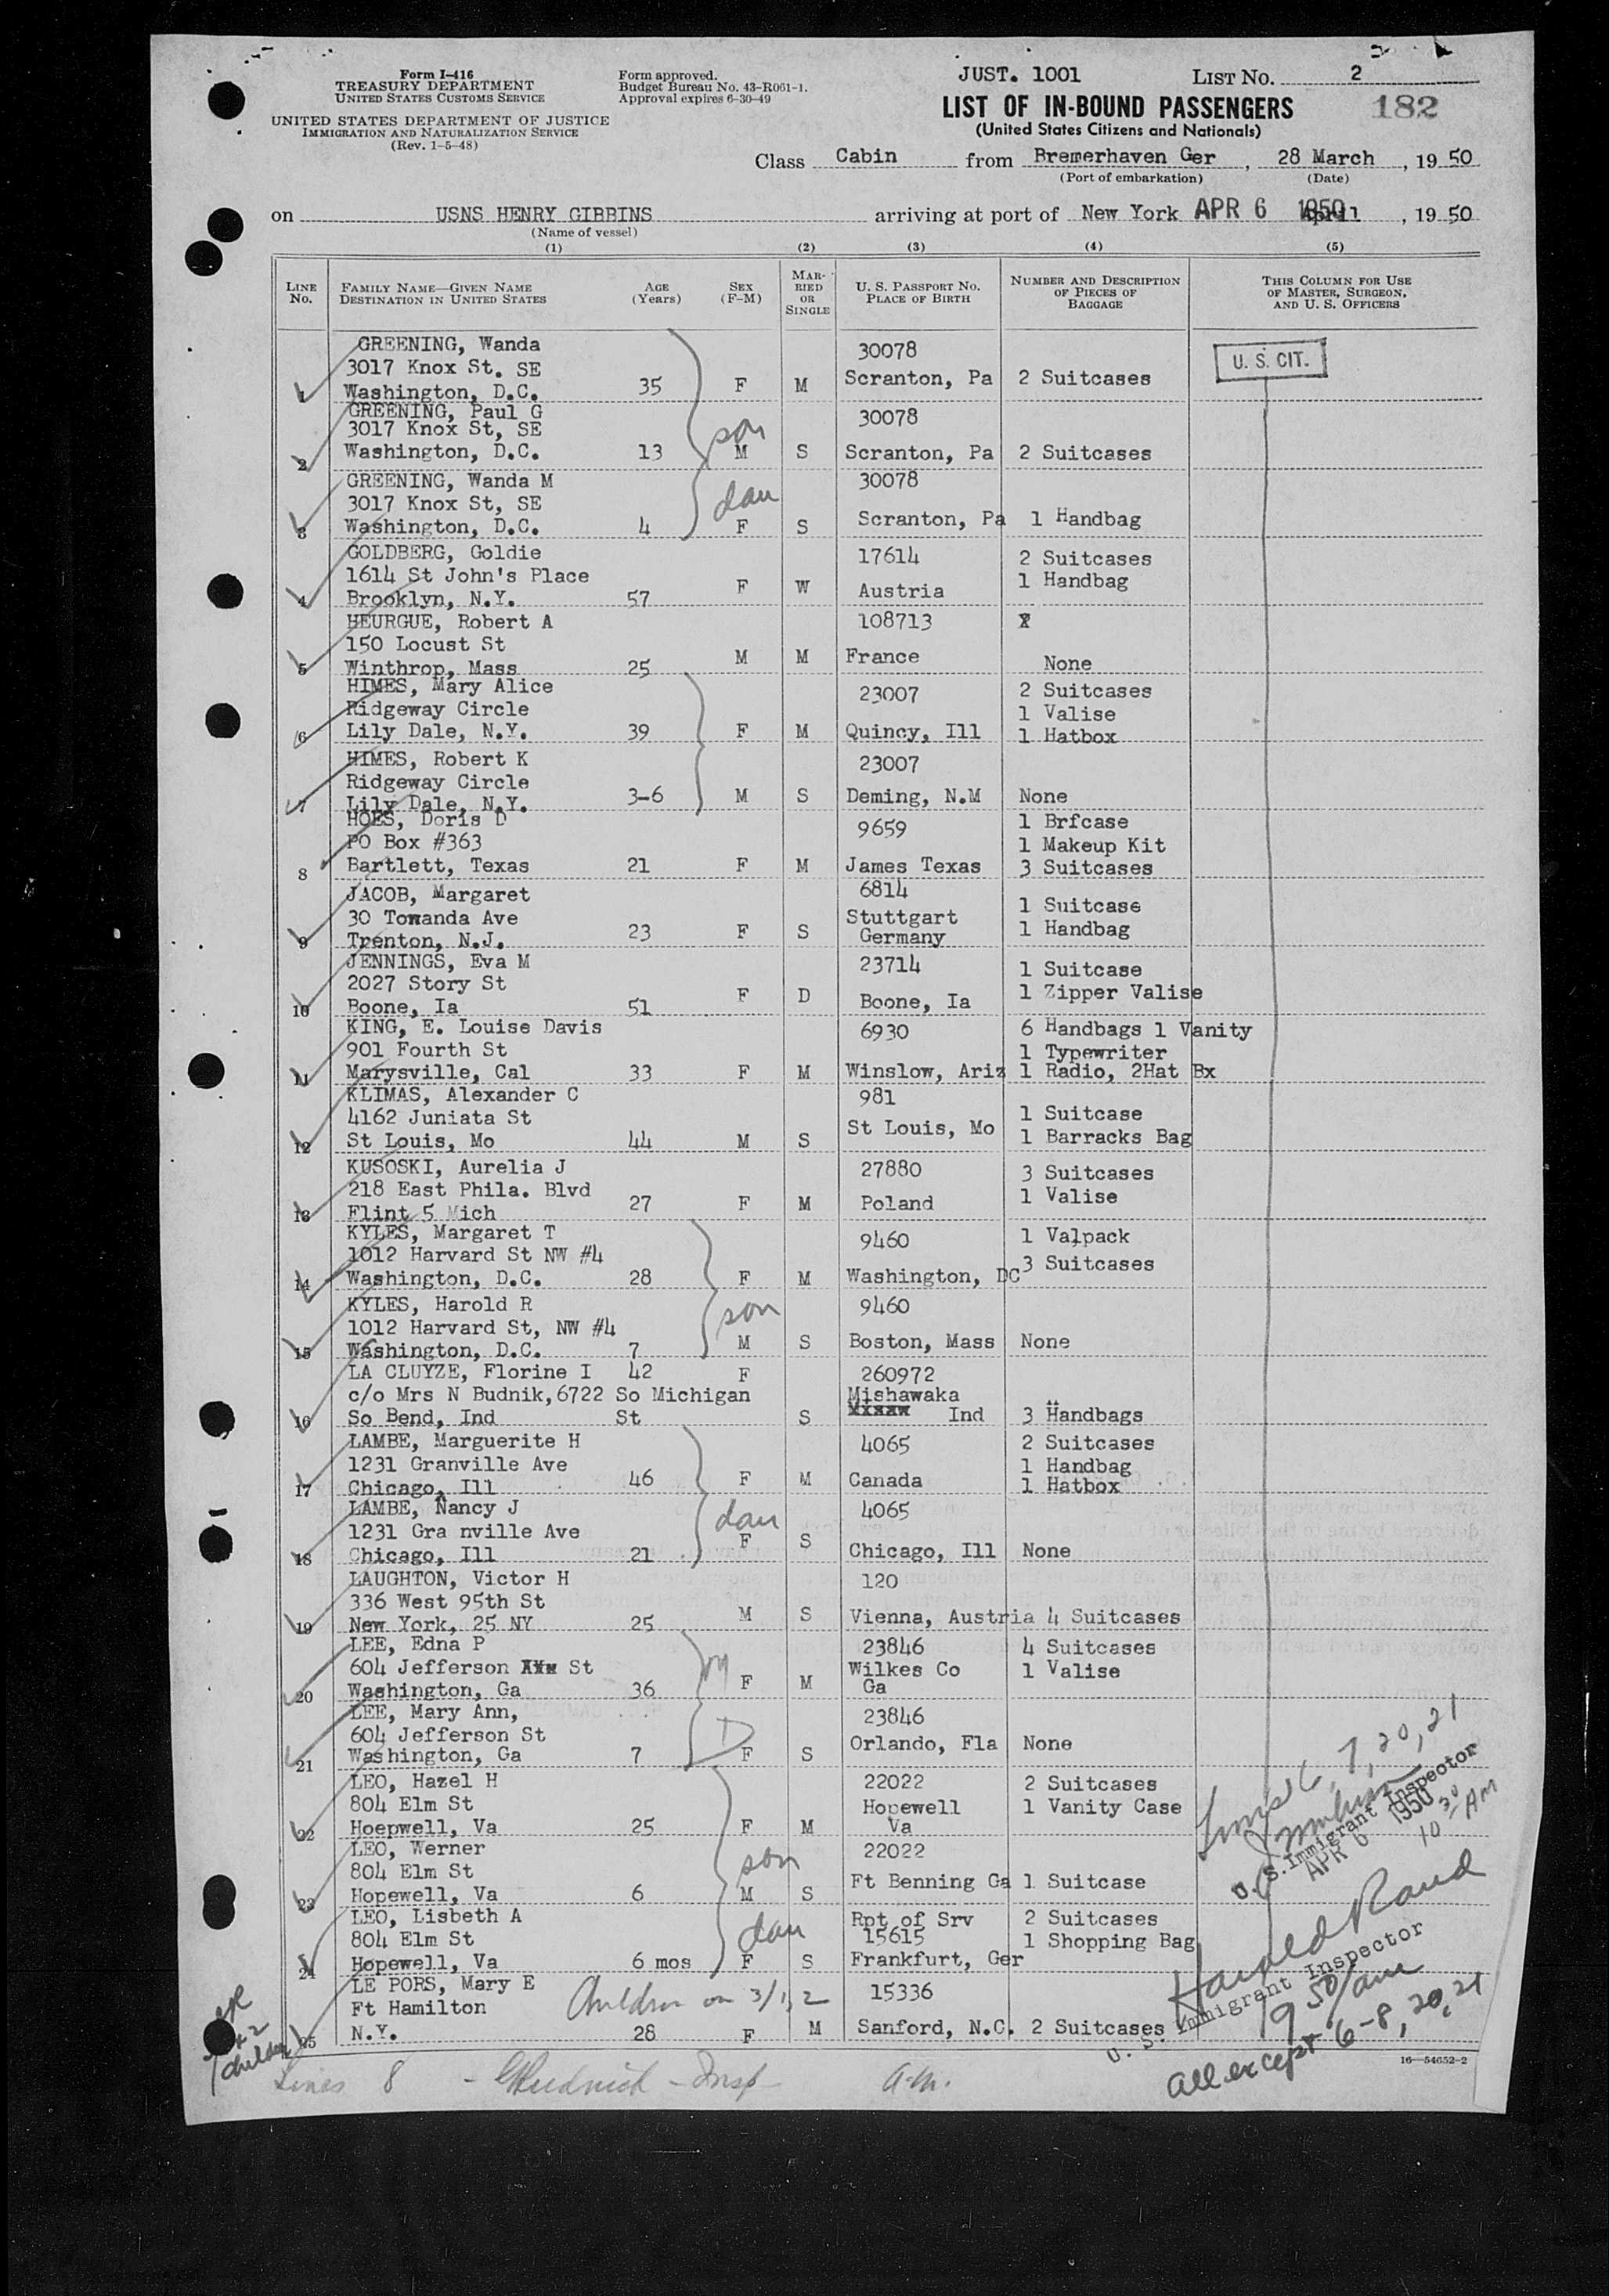 Form I-416
TREASURY DEPARTMENT
UNITED STATES CUSTOMS SERVICE
UNITED STATES DEPARTMENT OF JUSTICE
IMMIGRATION AND NATURALIZATION SERVICE
(Rev. 1-5-48)
Form approved.
Budget Bureau No. 43-R061-1.
Approval expires 6-30-49
JUST. 1001 LIST NO. 2
LIST OF IN-BOUND PASSENGERS 182
(United States Citizens and Nationals)
Class Cabin from Bremerhaven Ger, 28 March, 19 50
(Port of embarkation) (Date)
on USNS HENRY GIBBINS arriving at port of New York APR 6 1950 April, 19 50
(Name of vessel)
(1) (2) (3) (4) (5)
LINE NO. FAMILY NAME—GIVEN NAME DESTINATION IN UNITED STATES AGE (Years) SEX (F-M) MARRIED OR SINGLE U. S. PASSPORT NO. PLACE OF BIRTH NUMBER AND DESCRIPTION OF PIECES OF BAGGAGE THIS COLUMN FOR USE OF MASTER, SURGEON, AND U. S. OFFICERS
GREENING, Wanda 30078 U. S. CIT.
3017 Knox St. SE
1 Washington, D.C. 35 F M Scranton, Pa 2 Suitcases
GREENING, Paul G 30078
3017 Knox St, SE son
2 Washington, D.C. 13 M S Scranton, Pa 2 Suitcases
GREENING, Wanda M 30078
3017 Knox St, SE dau
3 Washington, D.C. 4 F S Scranton, Pa 1 Handbag
GOLDBERG, Goldie 17614 2 Suitcases
1614 St John's Place F W Austria 1 Handbag
4 Brooklyn, N.Y. 57
HEURGUE, Robert A 108713
150 Locust St M M France
5 Winthrop, Mass 25 None
HIMES, Mary Alice 23007 2 Suitcases
Ridgeway Circle 1 Valise
6 Lily Dale, N.Y. 39 F M Quincy, Ill 1 Hatbox
HIMES, Robert K 23007
Ridgeway Circle
7 Lily Dale, N.Y. 3-6 M S Deming, N.M None
HOES, Doris D 9659 1 Brfcase
PO Box #363 1 Makeup Kit
8 Bartlett, Texas 21 F M James Texas 3 Suitcases
JACOB, Margaret 6814 1 Suitcase
30 Towanda Ave Stuttgart 1 Handbag
9 Trenton, N.J. 23 F S Germany
JENNINGS, Eva M 23714 1 Suitcase
2027 Story St F D 1 Zipper Valise
10 Boone, Ia 51 Boone, Ia
KING, E. Louise Davis 6930 6 Handbags 1 Vanity
901 Fourth St 1 Typewriter
11 Marysville, Cal 33 F M Winslow, Ariz 1 Radio, 2Hat Bx
KLIMAS, Alexander C 981
4162 Juniata St St Louis, Mo 1 Suitcase
12 St Louis, Mo 44 M S 1 Barracks Bag
KUSOSKI, Aurelia J 27880 3 Suitcases
218 East Phila. Blvd 27 F M Poland 1 Valise
13 Flint 5 Mich
KYLES, Margaret T 9460 1 Valpack
1012 Harvard St NW #4 3 Suitcases
14 Washington, D.C. 28 F M Washington, DC
KYLES, Harold R 9460
1012 Harvard St, NW #4 son
15 Washington, D.C. 7 M S Boston, Mass None
LA CLUYZE, Florine I 42 F 260972
c/o Mrs N Budnik,6722 So Michigan Mishawaka
16 So Bend, Ind St S Ind 3 Handbags
LAMBE, Marguerite H 4065 2 Suitcases
1231 Granville Ave 46 F M Canada 1 Handbag
17 Chicago, Ill 1 Hatbox
LAMBE, Nancy J 4065
1231 Gra nville Ave dau F S
18 Chicago, Ill 21 Chicago, Ill None
LAUGHTON, Victor H 120
336 West 95th St M S
19 New York, 25 NY 25 Vienna, Austria 4 Suitcases
LEE, Edna P 23846 4 Suitcases
604 Jefferson St Wilkes Co 1 Valise
20 Washington, Ga 36 F M Ga
LEE, Mary Ann, 23846
604 Jefferson St D Orlando, Fla None
21 Washington, Ga 7 F S
LEO, Hazel H 22022 2 Suitcases
804 Elm St Hopewell 1 Vanity Case
22 Hoepwell, Va 25 F M Va
LEO, Werner 22022
804 Elm St son Ft Benning Ga 1 Suitcase
23 Hopewell, Va 6 M S
LEO, Lisbeth A Rpt of Srv 2 Suitcases
804 Elm St dau 15615 1 Shopping Bag
24 Hopewell, Va 6 mos F S Frankfurt, Ger
LE PORS, Mary E 15336
Ft Hamilton Children on 3/1,2
25 N.Y. 28 F M Sanford, N.C. 2 Suitcases
Lines 6, 7, 20, 21
U. S. Immigrant Inspector
APR 6 1950
10 30 AM
Harold Rand
U. S. Immigrant Inspector
9 50/am
all except 6-8, 20, 21
16—54652-2
Lines 8 Insp a.m.